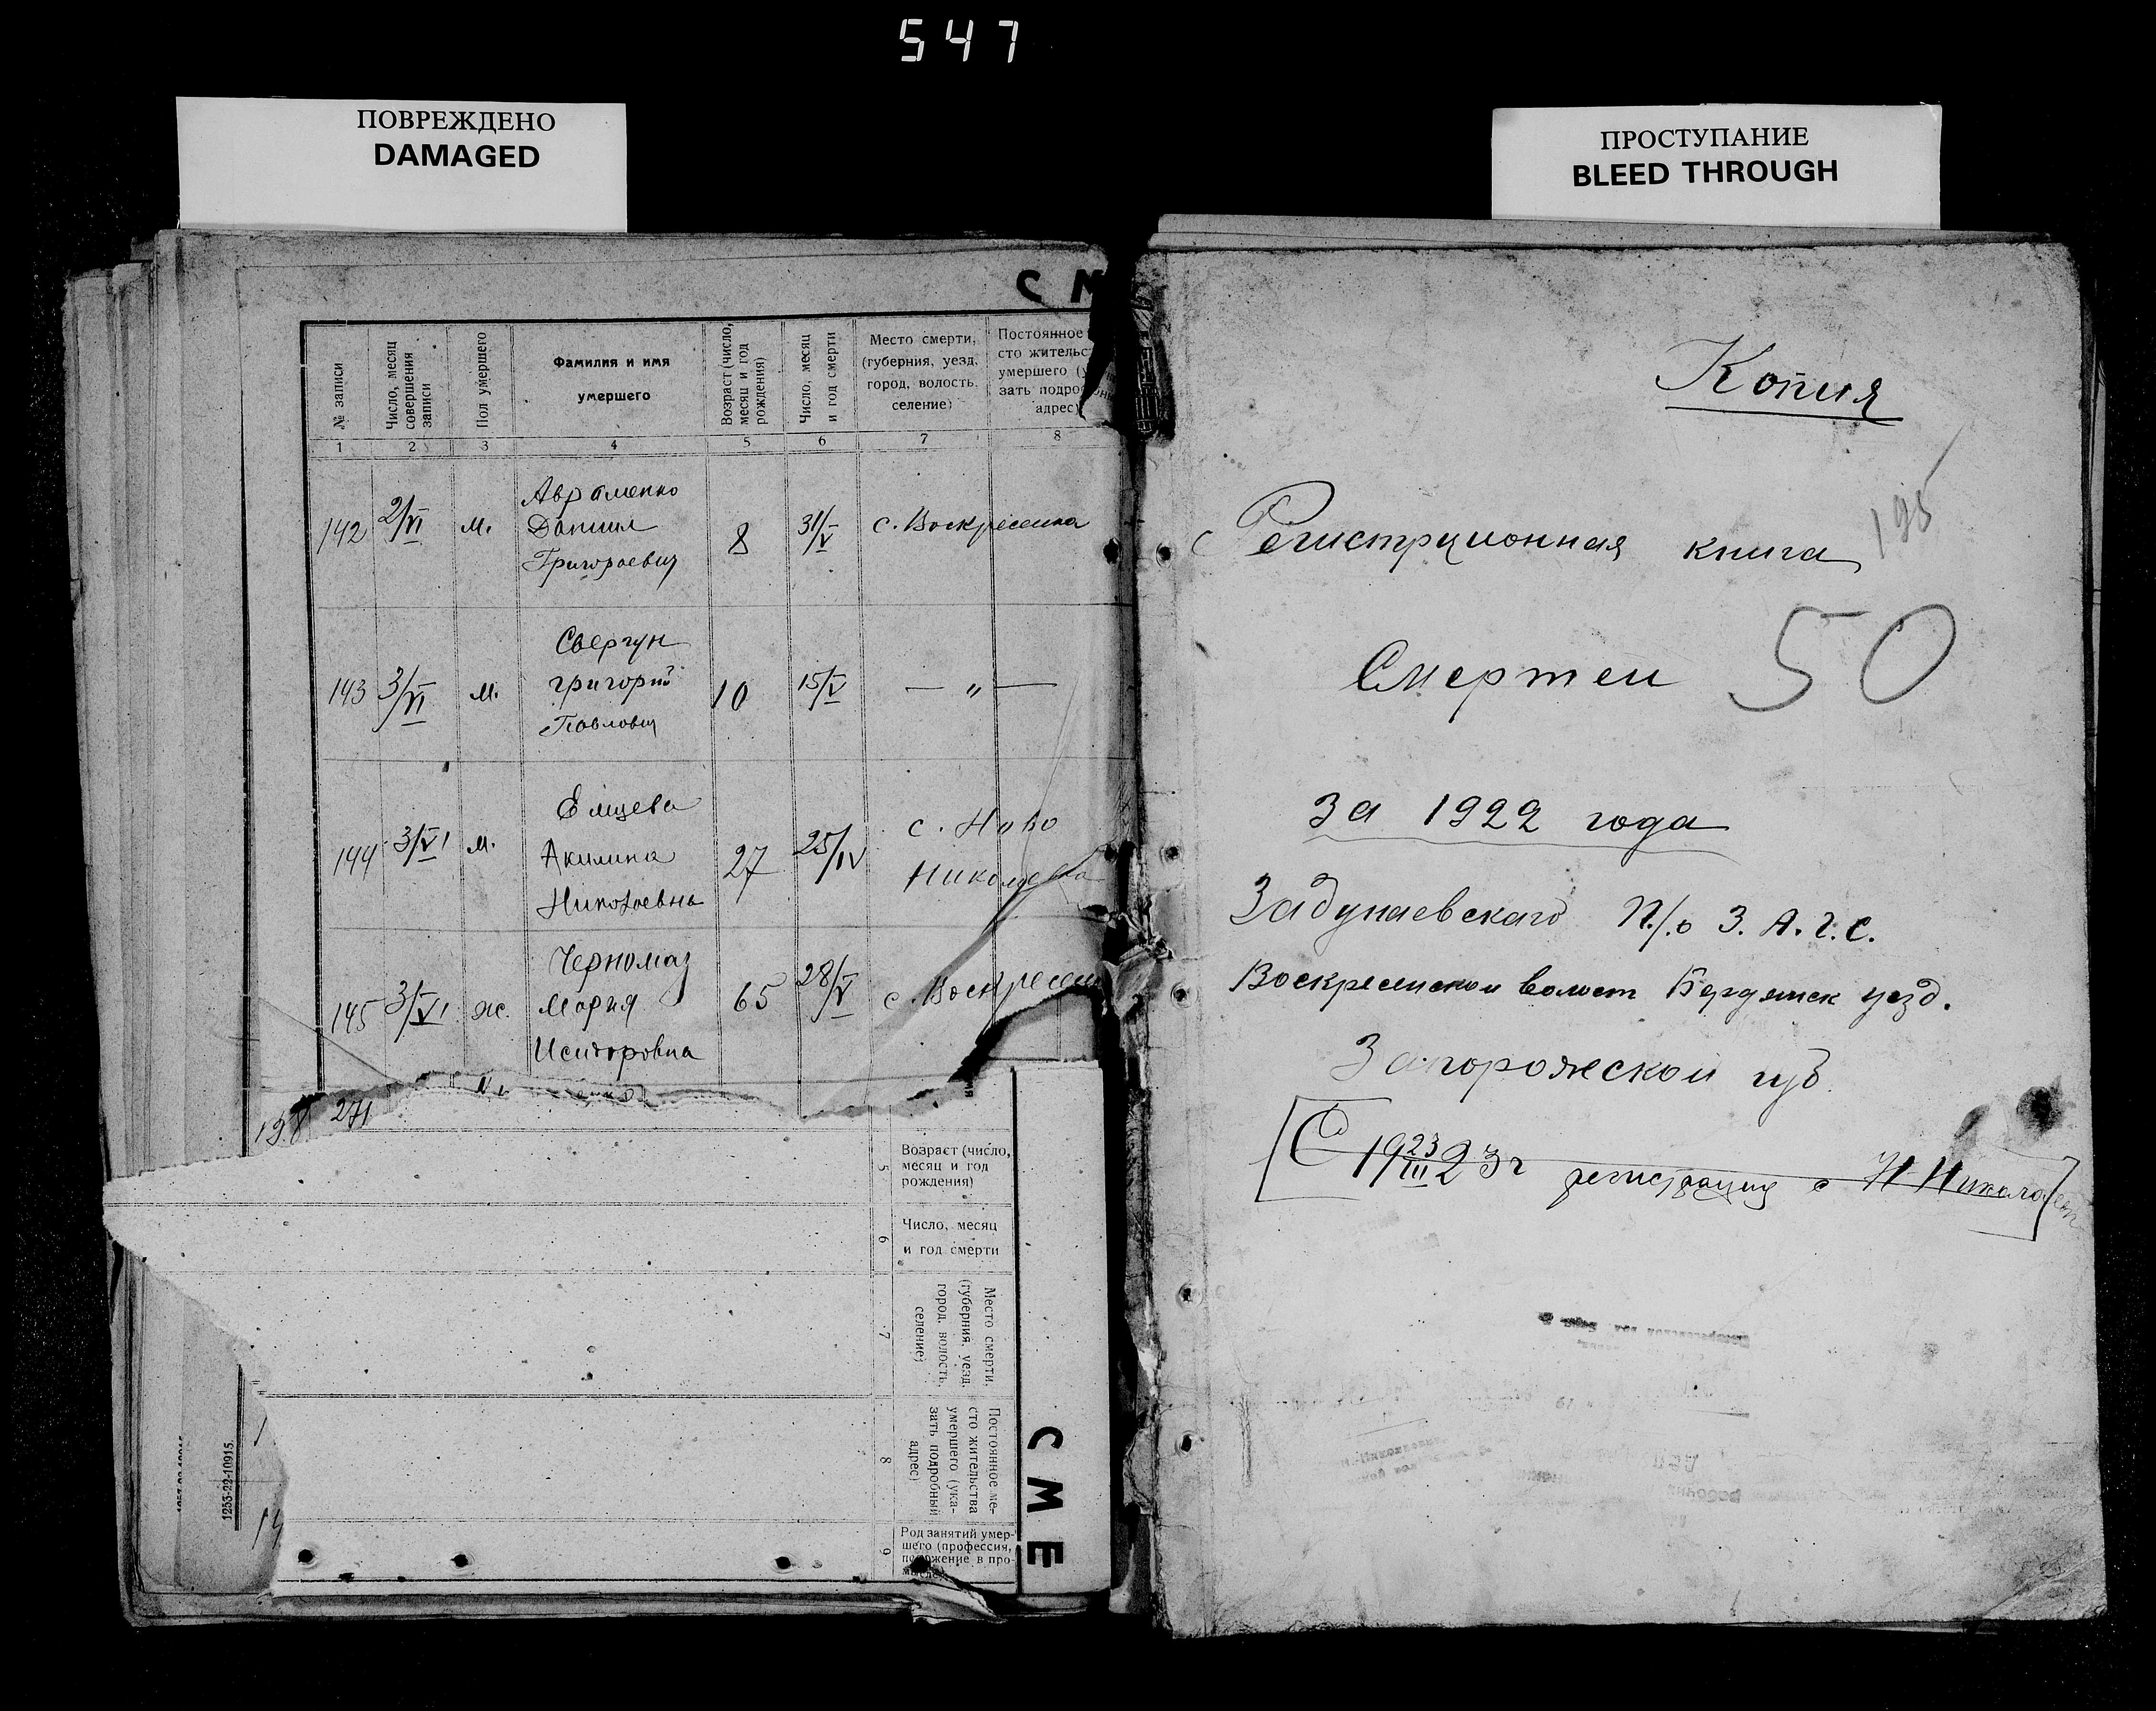 547
ПОВРЕЖДЕНО
DAMAGED
ПРОСТУПАНИЕ
BLEED THROUGH
С М
№ записи
Число, месяц
совершения
записи
Пол умершего
Фамилия и имя
умершего
Возраст (число,
месяц и год
рождения)
Число, месяц
и год смерти
Место смерти,
(губерния, уезд,
город, волость,
селение)
Постоянное
сто жительс
умершего (у
зать подро
адрес)
1 2 3 4 5 6 7 8
142 2/VI м. Авраменко
Даниил
Григорьевич
8 31/V с. Воскресенка
143 3/VI м. Свергун
григорий
Павлович
10 15/V — „ —
144 3/VI м. Елцева
Акилина
Николаевна
27 25/IV с. Ново
Николаевка
145 3/VI ж. Черномаз
Мария
Исидоровна
65 28/V с. Воскресен
198 271
Возраст (число,
месяц и год
рождения)
5
Число, месяц
и год смерти
6
Место смерти,
(губерния, уезд,
город, волость,
селение)
7
Постоянное ме-
сто жительства
умершего (ука-
зать подробный
адрес)
8
Род занятий умер-
шего (профессия,
положение в про-
9
С М Е
1253-22-10915
14
Копия
Регистрционная книга
195
Смертей 50
за 1922 года
Задунаевскаго П/о З. А. Г. С.
Воскресенской волост Бердянск уезд.
Запорожской губ.
С 19 23/III 23 г регистрация с Н Николаев